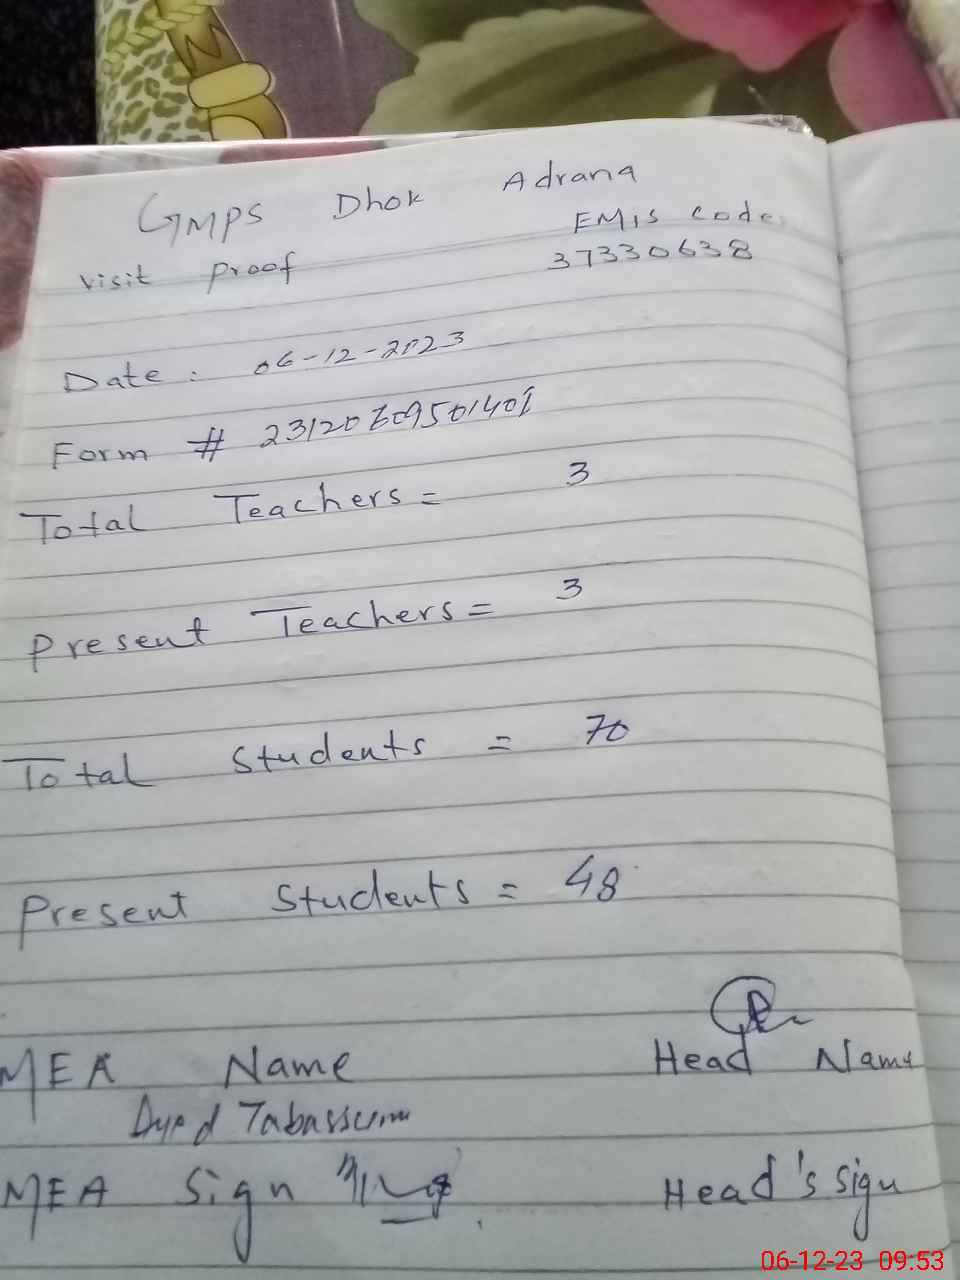 GMPS Dhok Adrana
EMIS code.
visit proof
37330638
Date : 06-12-2023
Form #
Total Teachers = 3
Present Teachers = 3
Total Students = 70
Present Students = 48
MEA Name
Head Name
Tabassum
MEA Sign
Head's sign
06-12-23 09:53